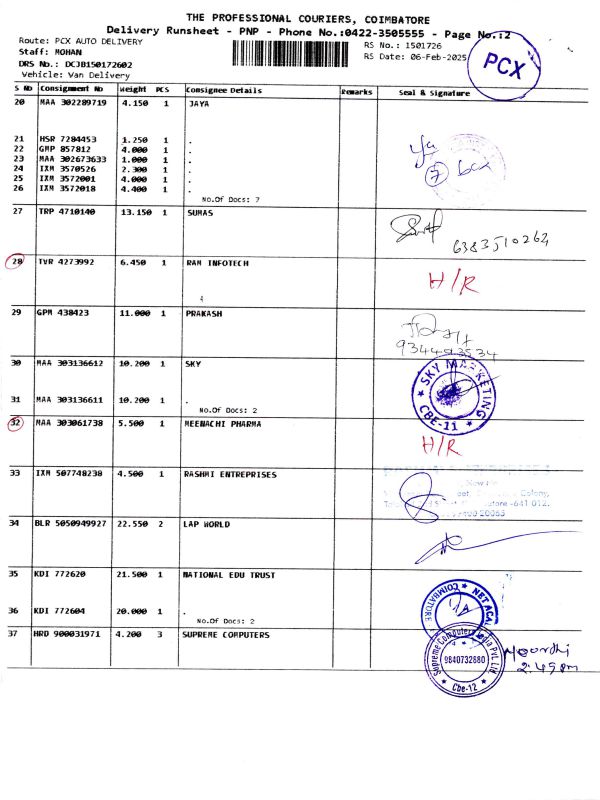 THE PROFESSIONAL COURIERS, COIMBATORE
Delivery Runsheet - PNP - Phone No.:0422-3505555 - Page No.:2
Route: PCX AUTO DELIVERY
RS No.: 1501726
Staff: MOHAN
RS Date: 06-Feb-2025
PCX
DRS No.: DCJB150172602
Vehicle: Van Delivery
S No Consignment No Weight PCS Consignee Details Remarks Seal & Signature
20 MAA 302289719 4.150 1 JAYA
21 HSR 7284453 1.250 1 .
22 GMP 857812 4.000 1 .
23 MAA 302673633 1.000 1 .
24 IXM 3570526 2.300 1 .
25 IXM 3572001 4.000 1 .
26 IXM 3572018 4.400 1 .
No.Of Docs: 7
7 box
27 TRP 4710140 13.150 1 SUMAS
6383510264
28 TVR 4273992 6.450 1 RAM INFOTECH
H/R
29 GPM 438423 11.000 1 PRAKASH
30 MAA 303136612 10.200 1 SKY
31 MAA 303136611 10.200 1 .
No.Of Docs: 2
SKY MARKETING
CBE-11
32 MAA 303061738 5.500 1 MEENACHI PHARMA
H/R
33 IXM 507748238 4.500 1 RASHMI ENTREPRISES
Colony,
-641 012.
34 BLR 5050949927 22.550 2 LAP WORLD
35 KDI 772620 21.500 1 NATIONAL EDU TRUST
36 KDI 772604 20.000 1 .
No.Of Docs: 2
COIMBATORE
37 HRD 900031971 4.200 3 SUPREME COMPUTERS
Supreme Computers India Pvt. Ltd.
9840732680
Cbe-12
Moorthi
2.45 pm